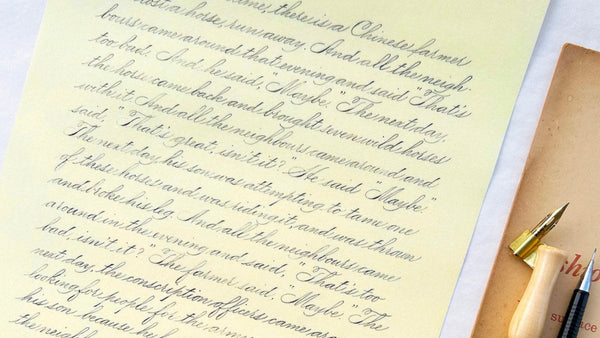 there is a Chinese farmer
lost a horse, run away. And all the neigh-
bours came around that evening and said "That's
too bad." And he said, "Maybe." The next day,
the horse came back and brought seven wild horses
with it. And all the neighbours came around and
said, "That's great, isn't it?" He said "Maybe."
The next day his son was attempting to tame one
of these horses and was riding it, and was thrown
and broke his leg. And all the neighbours came
around in the evening and said, "That's too
bad, isn't it?" The farmer said, "Maybe." The
next day, the conscription officers came
looking for people for the
his son because he
the